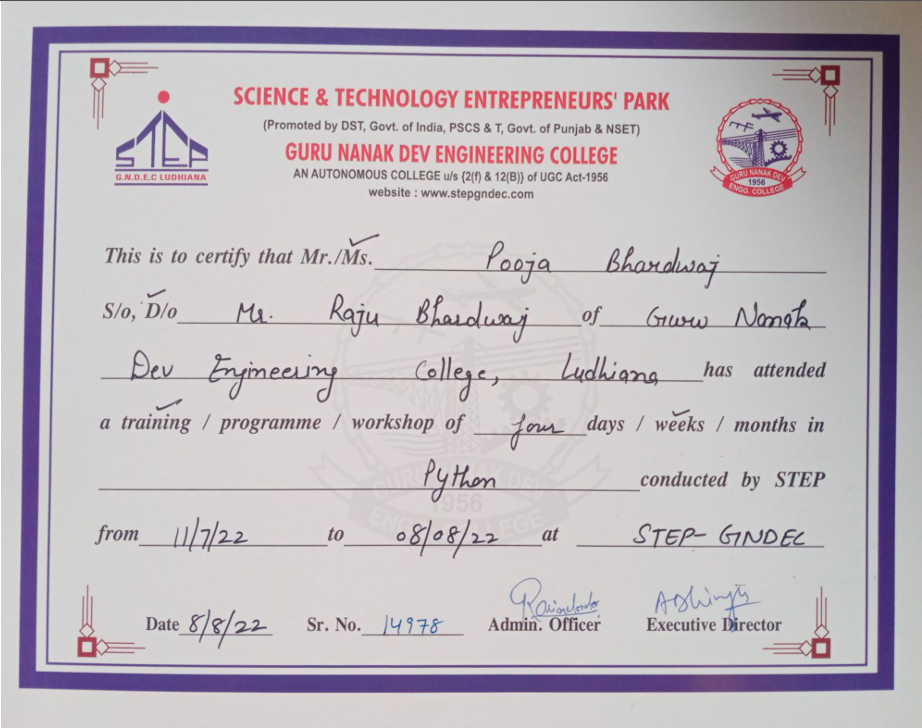 SCIENCE & TECHNOLOGY ENTREPRENEURS' PARK
(Promoted by DST, Govt. of India, PSCS & T, Govt. of Punjab & NSET)
GURU NANAK DEV ENGINEERING COLLEGE
AN AUTONOMOUS COLLEGE u/s {2(f) & 12(B)} of UGC Act-1956
website : www.stepgndec.com
STEP
G.N.D.E.C LUDHIANA
GURU NANAK DEV
1956
ENGG. COLLEGE
This is to certify that Mr./Ms. Pooja Bhardwaj
S/o, D/o Mr. Raju Bhardwaj of Guru Nanak
Dev Engineering College, Ludhiana has attended
a training / programme / workshop of four days / weeks / months in
Python conducted by STEP
from 11/7/22 to 08/08/22 at STEP- GNDEC
GURU NANAK DEV
1956
ENGG. COLLEGE
Date 8/8/22 Sr. No. 14978 Admin. Officer Executive Director